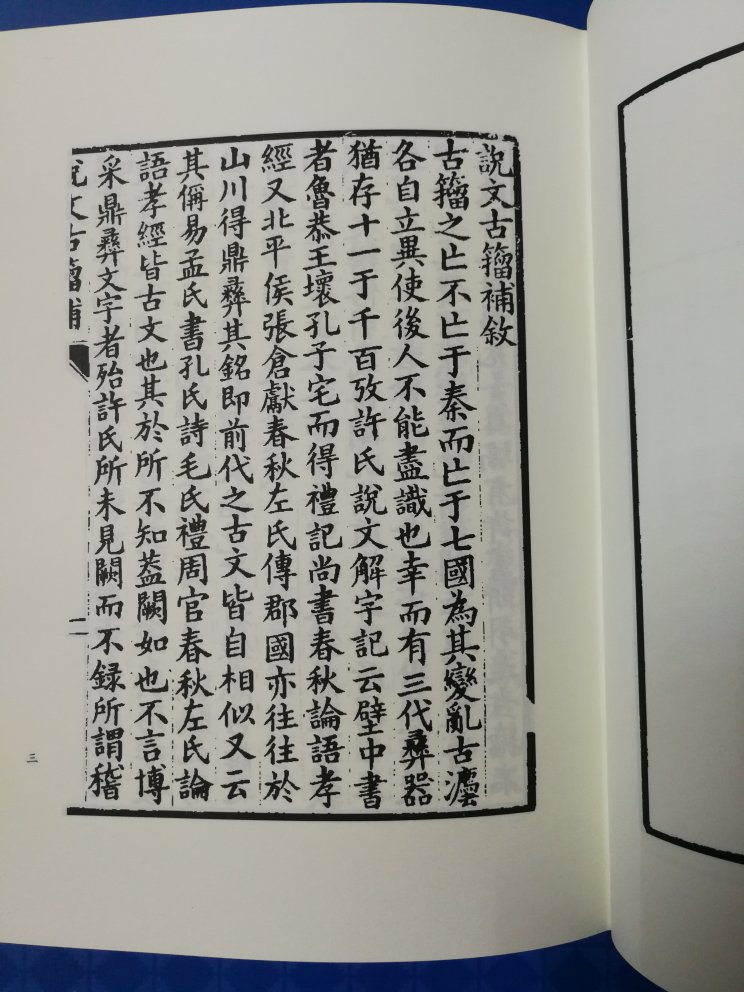 說文古籀補敘
古籀之亡不亡于秦而亡于七國為其變亂古灋
各自立異使後人不能盡識也幸而有三代彝器
猶存十一于千百攷許氏說文解字記云壁中書
者魯恭王壞孔子宅而得禮記尚書春秋論語孝
經又北平侯張倉獻春秋左氏傳郡國亦往往於
山川得鼎彝其銘即前代之古文皆自相似又云
其偁易孟氏書孔氏詩毛氏禮周官春秋左氏論
語孝經皆古文也其於所不知葢闕如也不言博
采鼎彝文字者殆許氏所未見闕而不錄所謂稽
說文古籀補
三